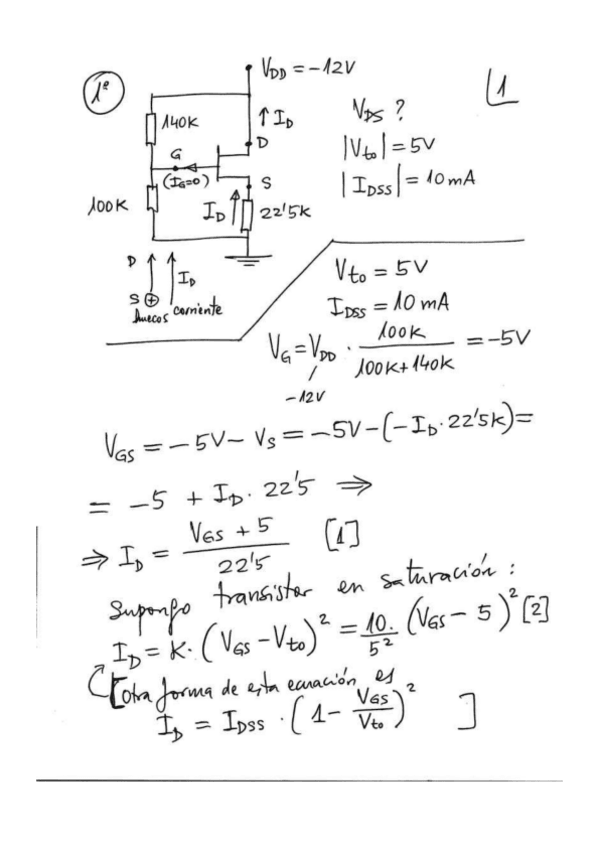 1º
V_DD = -12V
1
140K
↑ I_D
D
V_DS ?
G
|V_to| = 5V
(I_G=0)
S
|I_DSS| = 10 mA
100K
I_D ↑
22'5K
D
I_D
S ⊕
Huecos corriente
V_to = 5V
I_DSS = 10 mA
V_G = V_DD · 100K / (100K + 140K) = -5V
-12V
V_GS = -5V - V_S = -5V - (-I_D · 22'5K) =
= -5 + I_D · 22'5 ⇒
⇒ I_D = (V_GS + 5) / 22'5 [1]
Supongo transistor en saturación :
I_D = K · (V_GS - V_to)² = 10 / 5² · (V_GS - 5)² [2]
[otra forma de esta ecuación es
I_D = I_DSS · (1 - V_GS / V_to)² ]